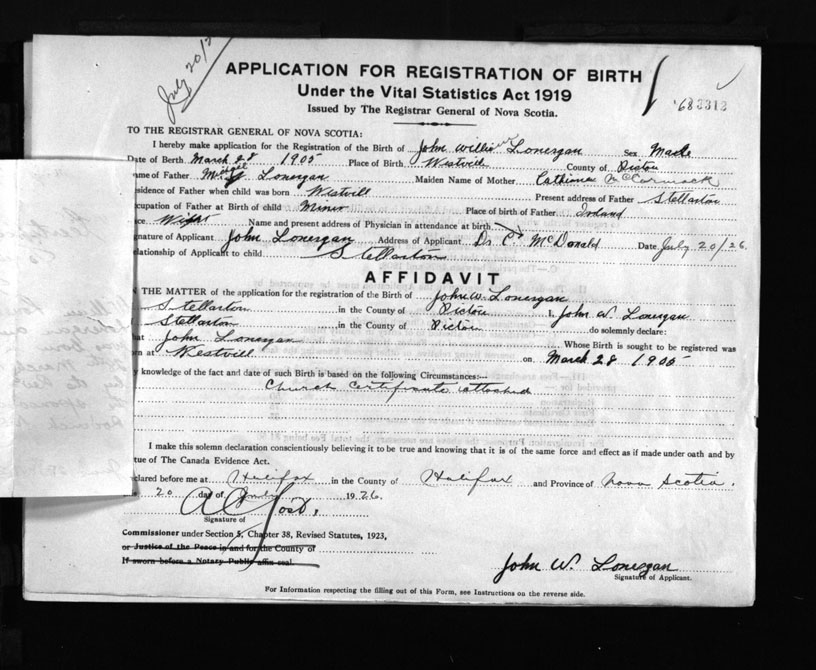 July 20/2
APPLICATION FOR REGISTRATION OF BIRTH
Under the Vital Statistics Act 1919
688313
Issued by The Registrar General of Nova Scotia.
TO THE REGISTRAR GENERAL OF NOVA SCOTIA:
I hereby make application for the Registration of the Birth of John William Lonergan Sex Male
Date of Birth March 28 1905 Place of Birth Westvill County of Pictou
me of Father Lonergan Maiden Name of Mother Cathrina McCormack
esidence of Father when child was born Westvill Present address of Father Stellarton
cupation of Father at Birth of child Miner Place of birth of Father Ireland
ce Name and present address of Physician in attendance at birth
gnature of Applicant John Lonergan Address of Applicant Dr. C McDonald Date July 20/26
elationship of Applicant to child Stellarton
AFFIDAVIT
N THE MATTER of the application for the registration of the Birth of John W. Lonergan
Stellarton in the County of Pictou I, John W. Lonergan
Stellarton in the County of Pictou do solemnly declare:
at John Lonergan Whose Birth is sought to be registered was
rn at Westvill on March 28 1905
y knowledge of the fact and date of such Birth is based on the following Circumstances:—
Church Certificate attached
I make this solemn declaration conscientiously believing it to be true and knowing that it is of the same force and effect as if made under oath and by
tue of The Canada Evidence Act.
clared before me at Halifax in the County of Halifax and Province of Nova Scotia.
20 day of July 1926.
Signature of
Commissioner under Section 5, Chapter 38, Revised Statutes, 1923,
or Justice of the Peace in and for the County of
If sworn before a Notary Public affix seal.
John W. Lonergan
Signature of Applicant.
For Information respecting the filling out of this Form, see Instructions on the reverse side.